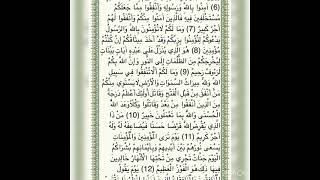 (6) آمِنُوا بِاللَّهِ وَرَسُولِهِ وَأَنْفِقُوا مِمَّا جَعَلَكُمْ
مُسْتَخْلَفِينَ فِيهِ فَالَّذِينَ آمَنُوا مِنْكُمْ وَأَنْفَقُوا لَهُمْ
أَجْرٌ كَبِيرٌ (7) وَمَا لَكُمْ لَا تُؤْمِنُونَ بِاللَّهِ وَالرَّسُولُ
يَدْعُوكُمْ لِتُؤْمِنُوا بِرَبِّكُمْ وَقَدْ أَخَذَ مِيثَاقَكُمْ إِنْ كُنْتُمْ
مُؤْمِنِينَ (8) هُوَ الَّذِي يُنَزِّلُ عَلَى عَبْدِهِ آيَاتٍ بَيِّنَاتٍ
لِيُخْرِجَكُمْ مِنَ الظُّلُمَاتِ إِلَى النُّورِ وَإِنَّ اللَّهَ بِكُمْ
لَرَءُوفٌ رَحِيمٌ (9) وَمَا لَكُمْ أَلَّا تُنْفِقُوا فِي سَبِيلِ
اللَّهِ وَلِلَّهِ مِيرَاثُ السَّمَاوَاتِ وَالْأَرْضِ لَا يَسْتَوِي مِنْكُمْ
مَنْ أَنْفَقَ مِنْ قَبْلِ الْفَتْحِ وَقَاتَلَ أُولَئِكَ أَعْظَمُ دَرَجَةً
مِنَ الَّذِينَ أَنْفَقُوا مِنْ بَعْدُ وَقَاتَلُوا وَكُلًّا وَعَدَ اللَّهُ
الْحُسْنَى وَاللَّهُ بِمَا تَعْمَلُونَ خَبِيرٌ (10) مَنْ ذَا
الَّذِي يُقْرِضُ اللَّهَ قَرْضًا حَسَنًا فَيُضَاعِفَهُ لَهُ وَلَهُ
أَجْرٌ كَرِيمٌ (11) يَوْمَ تَرَى الْمُؤْمِنِينَ وَالْمُؤْمِنَاتِ
يَسْعَى نُورُهُمْ بَيْنَ أَيْدِيهِمْ وَبِأَيْمَانِهِمْ بُشْرَاكُمُ
الْيَوْمَ جَنَّاتٌ تَجْرِي مِنْ تَحْتِهَا الْأَنْهَارُ خَالِدِينَ
فِيهَا ذَلِكَ هُوَ الْفَوْزُ الْعَظِيمُ (12) يَوْمَ يَقُولُ